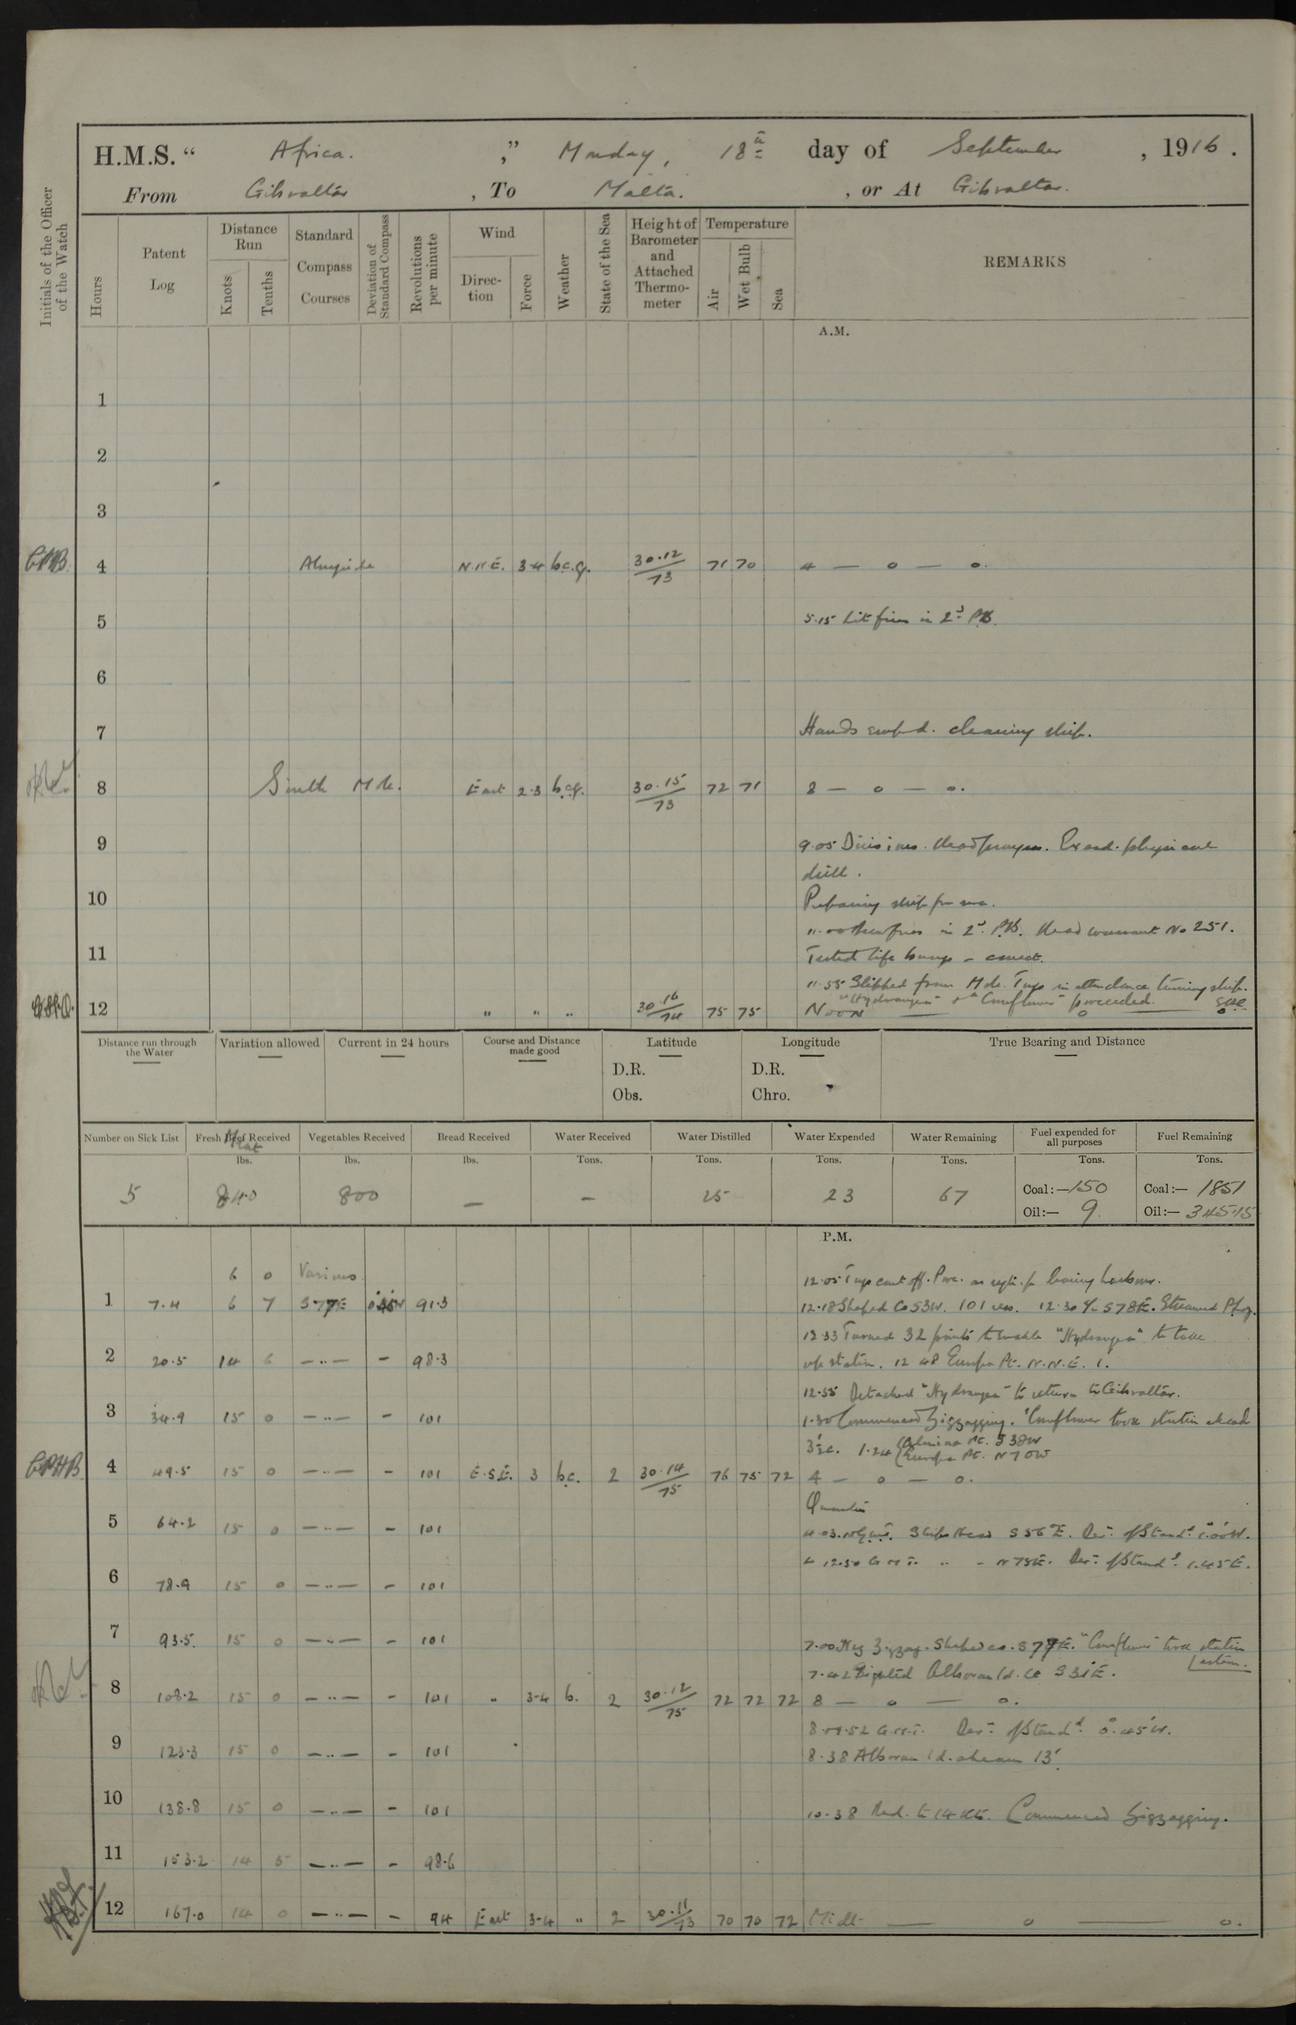 H.M.S. “ Africa. ,” Monday, 18th day of September , 1916 .
From Gibraltar , To Malta. , or At Gibraltar.
Initials of the Officer of the Watch
Hours
Patent Log
Distance Run
Knots
Tenths
Standard Compass Courses
Deviation of Standard Compass
Revolutions per minute
Wind
Direction
Force
Weather
State of the Sea
Height of Barometer and Attached Thermometer
Temperature
Air
Wet Bulb
Sea
REMARKS
A.M.
1
2
3
4 Alongside N.N.E. 3-4 b.c.q. 30.12/73 71 70 4 — o — o.
5 5.15 Lit fires in 2nd P.B.
6
7 Hands empd. cleaning ship.
8 South Mole. East 2-3 b.c.q. 30.15/73 72 71 8 — o — o.
9 9.05 Divisions. Read prayers. Exsd. physical
drill.
10 Preparing ship for sea.
11.00 fires in 2nd P.B. Read warrant No 251.
11 Tested life buoys - correct.
11.55 Slipped from Mole. Tugs in attendance turning ship.
"Hydrangea" & "Cornflower" proceeded.
12 " " " 30.16/74 75 75 Noon — o — o
Distance run through the Water
Variation allowed
Current in 24 hours
Course and Distance made good
Latitude
D.R.
Obs.
Longitude
D.R.
Chro.
True Bearing and Distance
Number on Sick List
Fresh Meat Received
Vegetables Received
Bread Received
Water Received
Water Distilled
Water Expended
Water Remaining
Fuel expended for all purposes
Fuel Remaining
lbs. lbs. lbs. Tons. Tons. Tons. Tons. Tons. Tons.
5 840 800 — — 25 23 67 Coal:— 150 Coal:— 1851
Oil:— 9 Oil:— 345.15
P.M.
6 0 Various 12.05 Tugs cast off. Proc. as reqte. for leaving harbour.
1 7.4 6 7 S77E 0.45W 91.3 12.18 Shaped Co S3W. 101 revs. 12.30 S78E. Streamed P.Log.
12.33 Turned 32 points to enable "Hydrangea" to take
2 20.5 14 6 — .. — - 98.3 up station. 12.48 Europa Pt. N.N.E. 1.
12.55 Detached "Hydrangea" to return to Gibraltar.
3 34.9 15 0 — .. — - 101 1.30 Commenced Zigzagging. "Cornflower" took station ahead
1.24 Almina Pt. S38W
Europa Pt. N70W
4 49.5 15 0 — .. — - 101 E.S.E. 3 b.c. 2 30.14/75 76 75 72 4 — o — o.
Quarters
5 64.2 15 0 — .. — - 101 4.03.10 G.M.T. Ships Head S56°E. Devn. of Standd. 1.00W.
4.12.50 G.M.T. " - N75E. Devn. of Standd. 1.45E.
6 78.9 15 0 — .. — - 101
7 93.5 15 0 — .. — - 101 7.00 Neg Zigzag. Shaped co. S77E. "Cornflower" took station
astern.
7.42 Sighted Alboran Id. Lt S31E.
8 108.2 15 0 — .. — - 101 " 3-4 b. 2 30.12/75 72 72 72 8 — o — o.
G.M.T. Devn. of Standd. 0.45'W.
9 123.3 15 0 — .. — - 101 8.38 Alboran Id. abeam 13'.
10 138.8 15 0 — .. — - 101 10.38 Red. to 14 kts. Commenced Zigzagging.
11 153.2 14 5 — .. — - 98.6
12 167.0 14 0 — .. — - 94 East 3-4 " 2 30.11/73 70 70 72 Midt. — o — o.